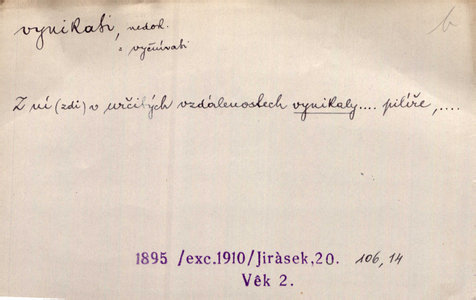 vynikati, nedok. b
= vyčnívati
Z ní (zdi) v určitých vzdálenostech vynikaly.... pilíře,....
1895 /exc.1910/Jiràsek,20. 106, 14
Vêk 2.